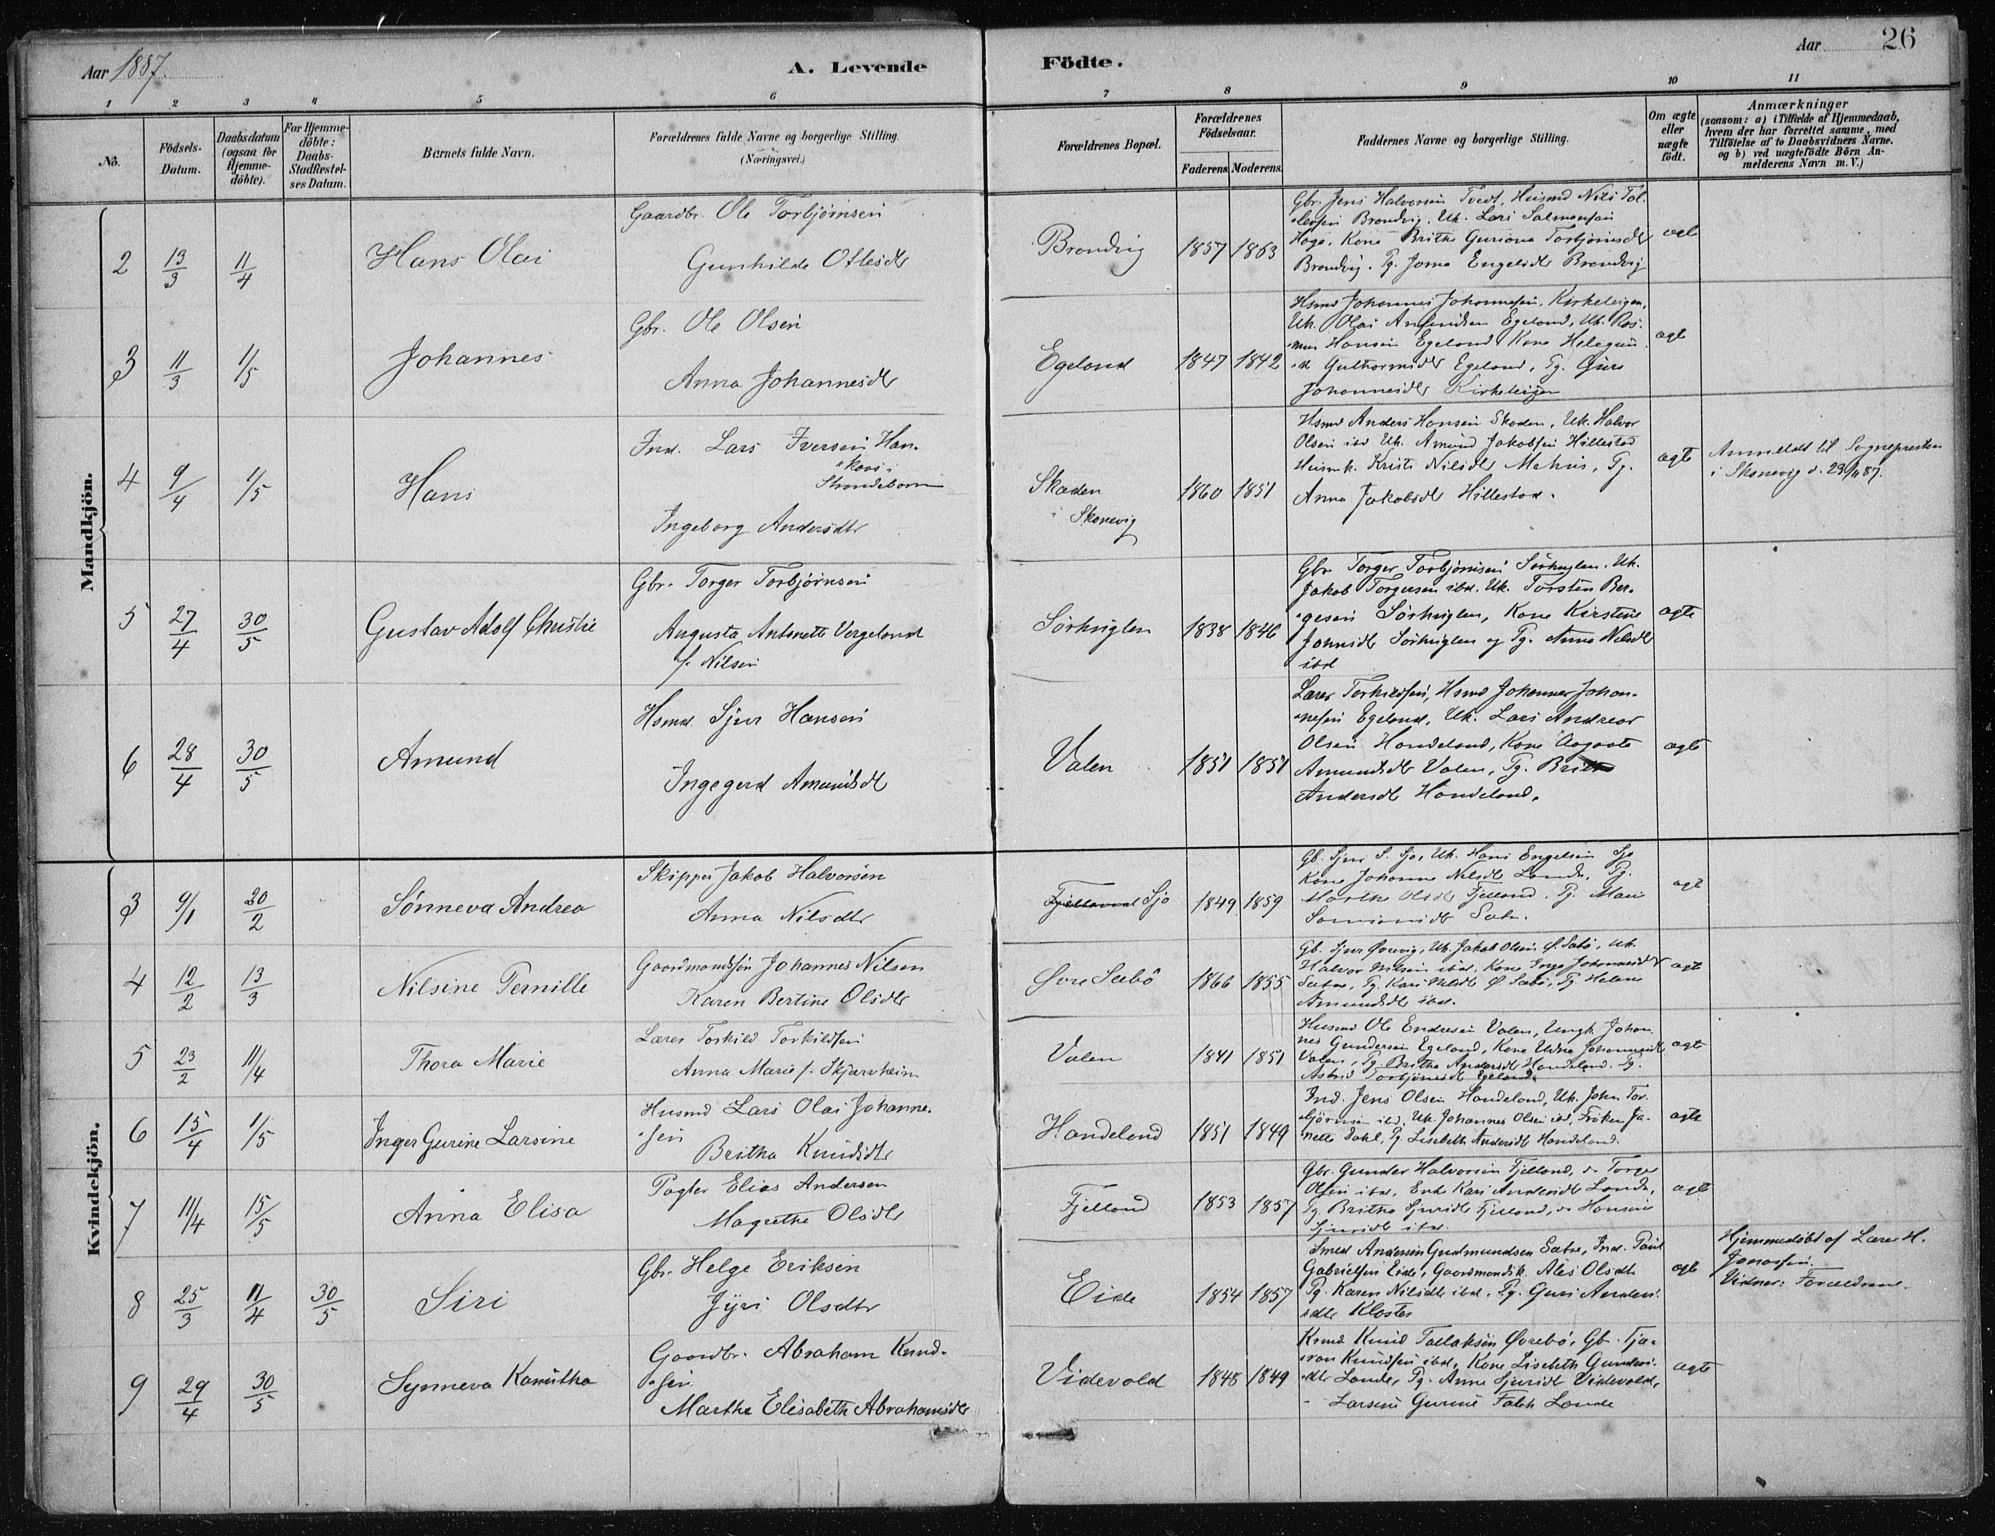 Aar 1887.
A. Levende Födte.
Aar 26
1 2 3 4 5 6 7 8 9 10 11
No.
Födsels-Datum.
Daabsdatum (ogsaa for Hjemme-döbte).
For Hjemme-döbte: Daabs-Stadfæstel-ses Datum.
Barnets fulde Navn.
Forældrenes fulde Navne og borgerlige Stilling.
(Næringsvei.)
Forældrenes Bopæl.
Forældrenes Födselsaar.
Faderens Moderens.
Faddernes Navne og borgerlige Stilling.
Om ægte eller uægte födt.
Anmærkninger
(saasom: a) i Tilfælde af Hjemmedaab,
hvem der har forrettet samme, med
Tilföielse af to Daabsvidners Navne.
og b) ved uægtefödte Börn An-
melderens Navn m. V.)
Mandkjön.
2 13/3 11/4 Hans Olai
Gaardbr. Ole Torbjörnsen
Gunhilde Ottesdr
Brondvig 1857 1863
Gbr. Jens Halvorsen Tvedt, Husmd Nils Tol-
lefsen Brondvig, Uk. Lars Salmonsen
Hoge, Kone Britha Guriane Torbjörnsdr
Brondvig, Pg. Jorna Engelsdr Brondvig
agt
3 11/3 1/5 Johannes
Gbr. Ole Olsen
Anna Johannesdr
Egeland 1847 1842
Hsmd Johannes Johannesen, Kirkeleigen,
Uk. Olai Amundsen Egeland, Uk. Ras-
mus Hansen Egeland Kone Helegun-
d Guthormsdr Egeland, Pg. Guro
Johannesdr Kirkeleigen
agt
4 9/4 1/5 Hans
Ind. Lars Iversen Han-
skaas i
Strandebarm
Ingeborg Andersdtr
Skaden
i Skonevig
1860 1851
Hsmd Anders Hansen Skaden, Uk. Halvor
Olsen ibd Uk. Amund Jakobsen Hillestad
Husmk. Kristi Nilsdr Mehus, Pg.
Anna Jakobsdr Hillestad.
agte
Anmeldt til Sognepresten
i Skonevig d. 23/4 87.
5 27/4 30/5 Gustav Adolf Christie
Gbr. Torger Torbjörnsen
Augusta Antonette Vergeland
f. Nilsen
Sörhuglen 1838 1846
Gbr Torger Torbjörnsen Sörhuglen. Uk.
Jakob Torgersen ibd. Uk. Torsten Ber-
gesen Sörhuglen, Kone Kirstine
Johnsdr Sörhuglen og Pg. Anna Nilsdr
ibd
agte
6 28/4 30/5 Amund
Hsmd. Sjur Hansen
Ingegerd Amundsdr
Valen 1851 1851
Lærer Torkildsen, Hsmd Johannes Johan-
nesen Egeland, Uk. Lars Andreas
Olsen Handeland, Kone Aagaate
Amundsdr Valen, Pg. Britha
Andersdr Handeland.
agte
Kvindekjön.
3 9/1 20/2 Sønneva Andrea
Skipper Jakob Halvorsen
Anna Nilsdtr
Fjelland Sjo 1849 1859
Gb. Sjur S. Sjo, Uk. Hans Engelsen Sjo
Kone Johanne Nilsdr Lande, Pg.
Marthe Olsdr Fjelland. Pg. Mari
Sæbø.
agt
4 12/2 13/3 Nilsine Pernille
Gaardmandsøn Johannes Nilsen
Karen Bertine Olsdtr
Øvre Sæbö 1866 1855
Gb. Sjur Øvrevig, Uk. Jakob Olsen Ø. Sæbö, Uk.
Halvor Nilsen ibd. Kone Inger Johannesdr
Sætre, Pg. Kari Nilsdr Ø. Sæbö, Pg Helene
Amundsdr ibd.
agt
5 23/2 11/4 Thora Marie
Lærer Torkild Torkildsen
Anna Marie f. Skjarvheim
Valen 1841 1851
Husmd Ole Endresen Valen, Ungk. Johan-
nes Gundersen Egeland, Kone Udna Johannesdr
Valen, Pg. Britha Andersdr Handeland. Pg.
Astrid Torbjörnsdr Egeland.
agt
6 15/4 1/5 Inger Gurine Larsine
Husmd Lars Olai Johanne-
sen
Britha Knudsdtr
Handeland 1851 1849
Ind. Jens Olsen Handeland, Uk. John Tor-
björnsen ibd, Uk. Johannes Olsen ibd, Fröken Ja-
nette Dahl, Pg. Lisebeth Andersdr Handeland.
agte
7 11/4 15/5 Anna Elisa
Pagter Elias Andersen
Magrethe Olsdtr
Fjelland 1853 1857
Gbr. Gunder Halvorsen Fjelland, do Torger
Olsen ibd, Enke Kari Andersdr Lande,
Pg Britha Sjursdr Fjelland, do Hansine
Sjursdr ibd.
agt
8 25/3 11/4 30/5 Siri
Gbr. Helge Eriksen
Jyri Olsdtr
Eide 1854 1857
Smed Andersen Gudmundsen Sætre, Ind. Poul
Gabrielsen Eide, Gaardmandsk. Ales Olsdr
Pg. Karen Nilsdr ibd. Pg. Guri Anders-
sdtr Kloster
agt
Hjemmedöbt af Lærer H.
Jonassen.
Vidner: Forældrene.
9 29/4 30/5 Synneva Kanutha
Gaardbr. Abraham Knud-
sen
Marthe Elisabeth Abrahamsdr
Videvold 1848 1849
Krmd Knud Tollaksen Øvrebö, Gb. Tja-
ran Knudsen ibd, Kone Lisebeth Gunders-
dtr Lande, Pg. Anna Sjursdr Videvold,
- Larsine Gurine Falch Lande
agt